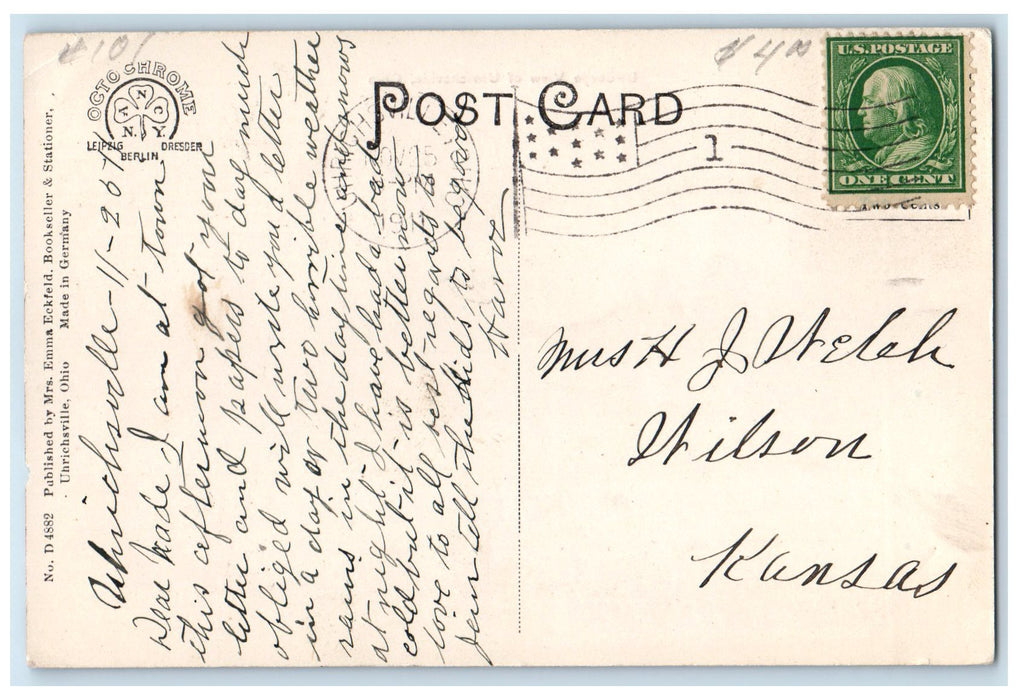 4101
$4.00
OCTOCHROME
A N C
N.Y.
LEIPZIG DRESDEN
BERLIN
POST CARD
U.S. POSTAGE
ONE CENT
1
Two Cents
No. D 4882 Published by Mrs. Emma Eckfeld, Bookseller & Stationer,
Uhrichsville, Ohio Made in Germany
Uhrichsville-11-20th
Dear Made I am at town
this afternoon got your
letter and papers to day much
obliged will write you a letter
in a day or two horrible weather
rains in the day time and snows
at night I have had a bad
cold but it is better now
love to all best regards to
tell the kids to be good
Mrs H J Welch
Wilson
Kansas